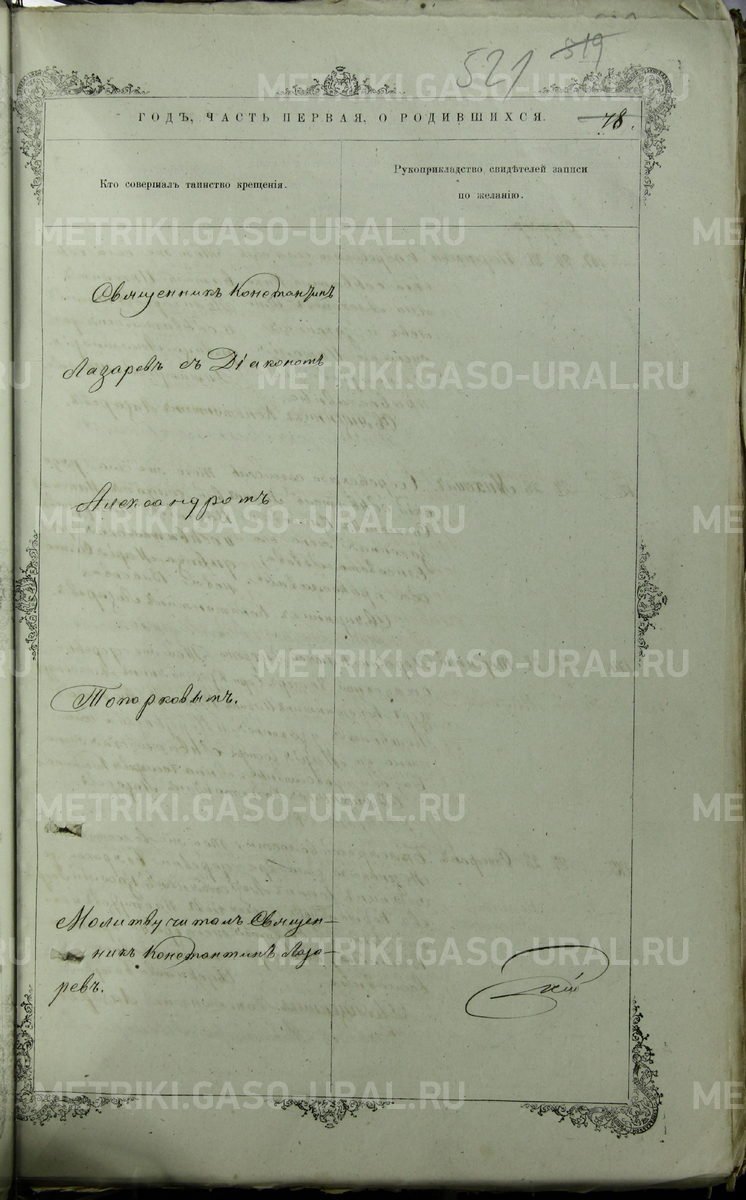 521 519
ГОДЪ, ЧАСТЬ ПЕРВАЯ, О РОДИВШИХСЯ.
78.
Кто совершалъ таинство крещенія.
Рукоприкладство свидѣтелей записи
по желанію.
Священникъ Константинъ
Лазаревъ съ Діакономъ
Александромъ
Топорковымъ.
Молитву читалъ Священ-
никъ Константинъ Лаза-
ревъ.
METRIKI.GASO-URAL.RU